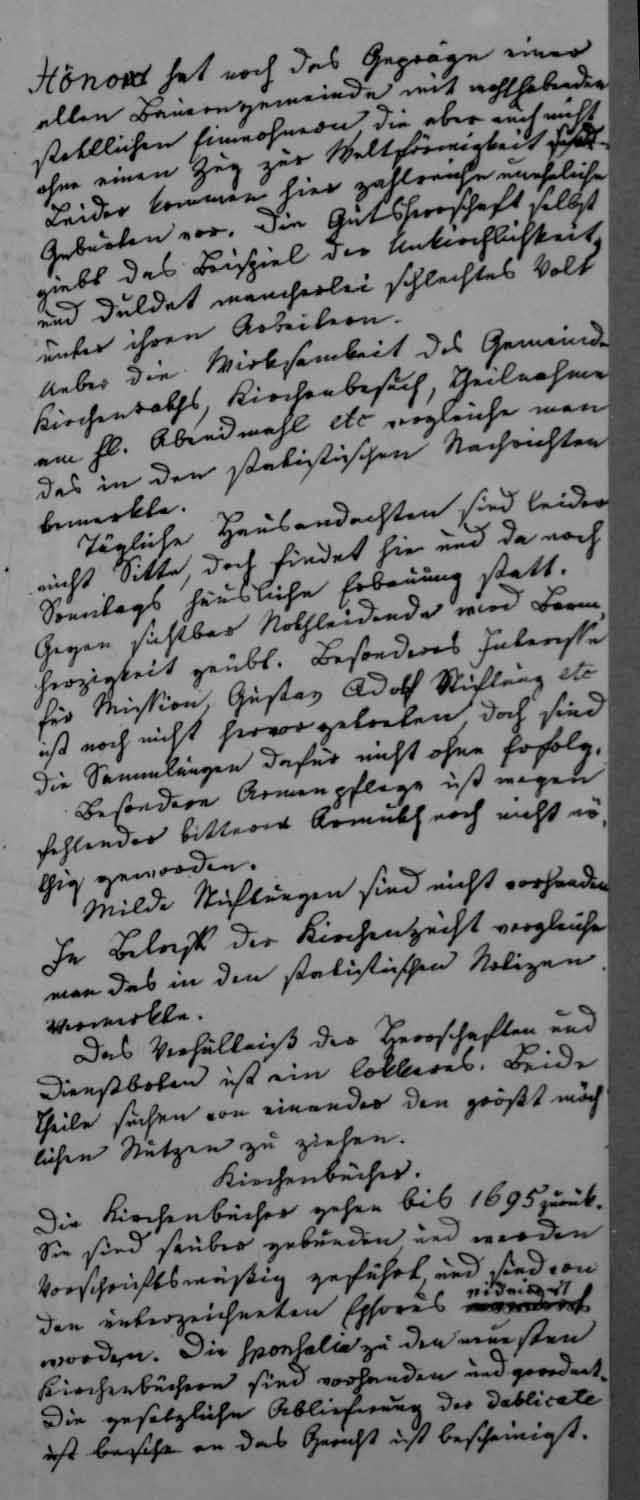 Hönow hat noch das Gepräge einer
alten Bauerngemeinde mit wohlhabenden
stattlichen Einwohnern, die aber auch nicht
ohne einen Zug zur Weltförmigkeit sind.
Leider kommen hier zahlreiche uneheliche
Geburten vor. Die Gutsherrschaft selbst
giebt das Beispiel der Unkirchlichkeit,
und duldet mancherlei schlechtes Volk
unter ihren Arbeitern.
Ueber die Wirksamkeit des Gemeinde
Kirchenraths, Kirchenbesuch, Theilnahme
am hl. Abendmahl etc vergleiche man
das in den statistischen Nachrichten
bemerkte.
Tägliche Hausandachten sind leider
nicht Sitte, doch findet hie und da noch
Sonntags häusliche Erbauung statt.
Gegen sichtbar Nothleidende wird Barm-
herzigkeit geübt. Besonderes Interesse
für Mission, Gustav Adolf Stiftung etc
ist noch nicht hervorgetreten, doch sind
die Sammlungen dafür nicht ohne Erfolg.
Besondere Armenpflege ist wegen
fehlender bitterer Armuth noch nicht nö-
thig geworden.
Milde Stiftungen sind nicht vorhanden
In Betreff der Kirchenzucht vergleiche
man das in den statistischen Notizen
vermerkte.
Das Verhältniß der Herrschaften und
Dienstboten ist ein lockeres. Beide
Theile suchen von einander den größt mög
lichen Nutzen zu ziehen.
Kirchenbücher.
Die Kirchenbücher gehen bis 1695 zurück.
Sie sind sauber gebunden und werden
vorschriftsmäßig geführt, und sind von
den unterzeichneten Ephorus
worden. Die Sponsalia zu den neuesten
Kirchenbüchern sind vorhanden und geordnet.
Die gesetzliche Ablieferung der Dublicate
ist an das Gericht ist bescheinigt.